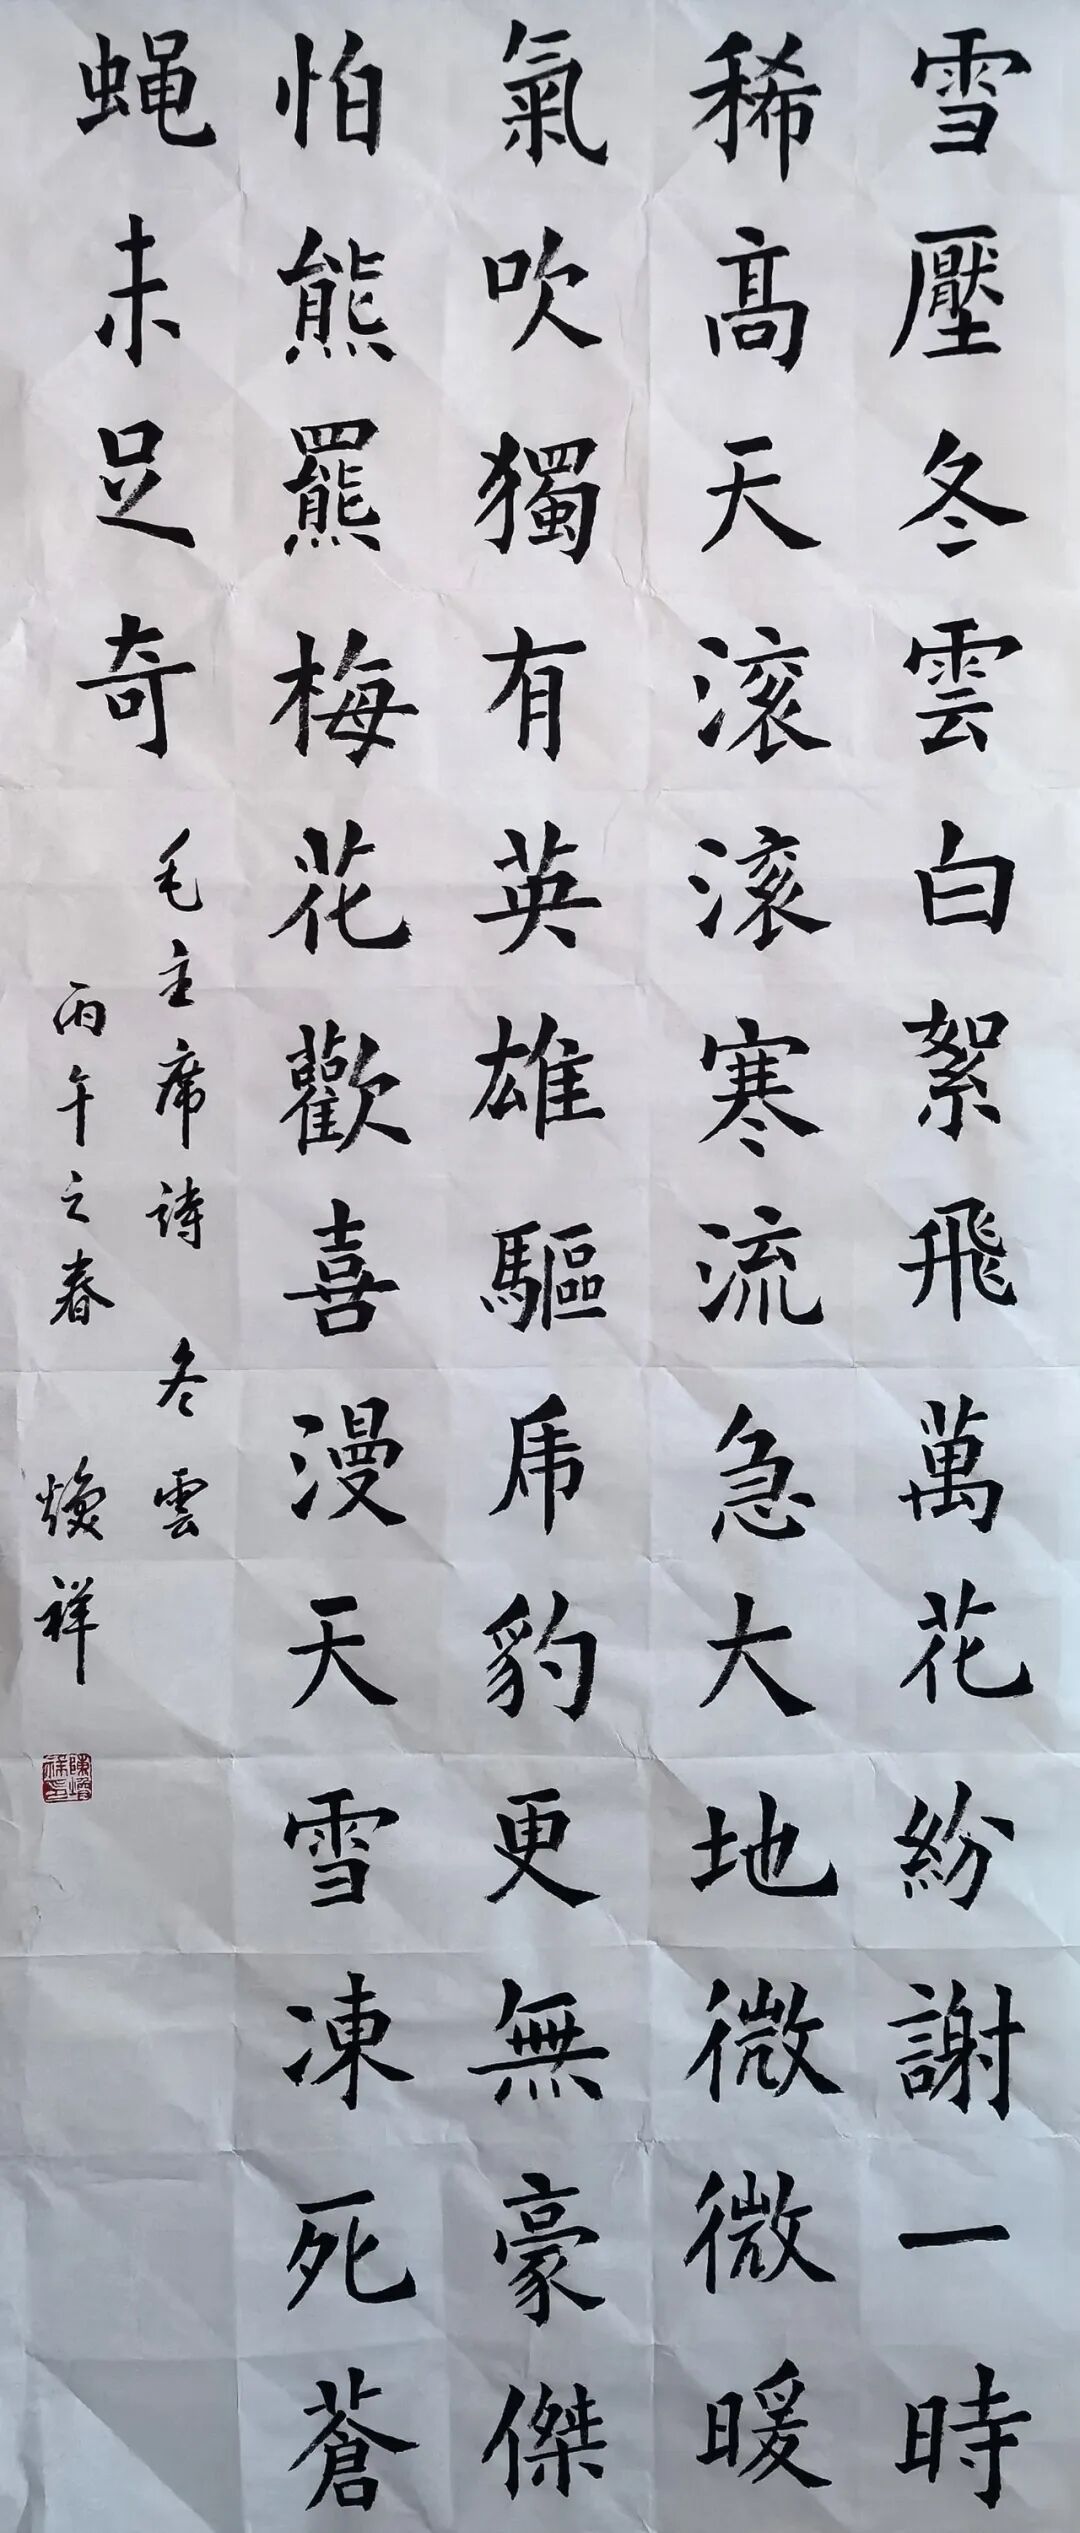 雪壓冬雲白絮飛萬花紛謝一時
稀高天滾滾寒流急大地微微暖
氣吹獨有英雄驅虎豹更無豪傑
怕熊羆梅花歡喜漫天雪凍死蒼
蝇未足奇
毛主席詩 冬雲
丙午之春 煥祥